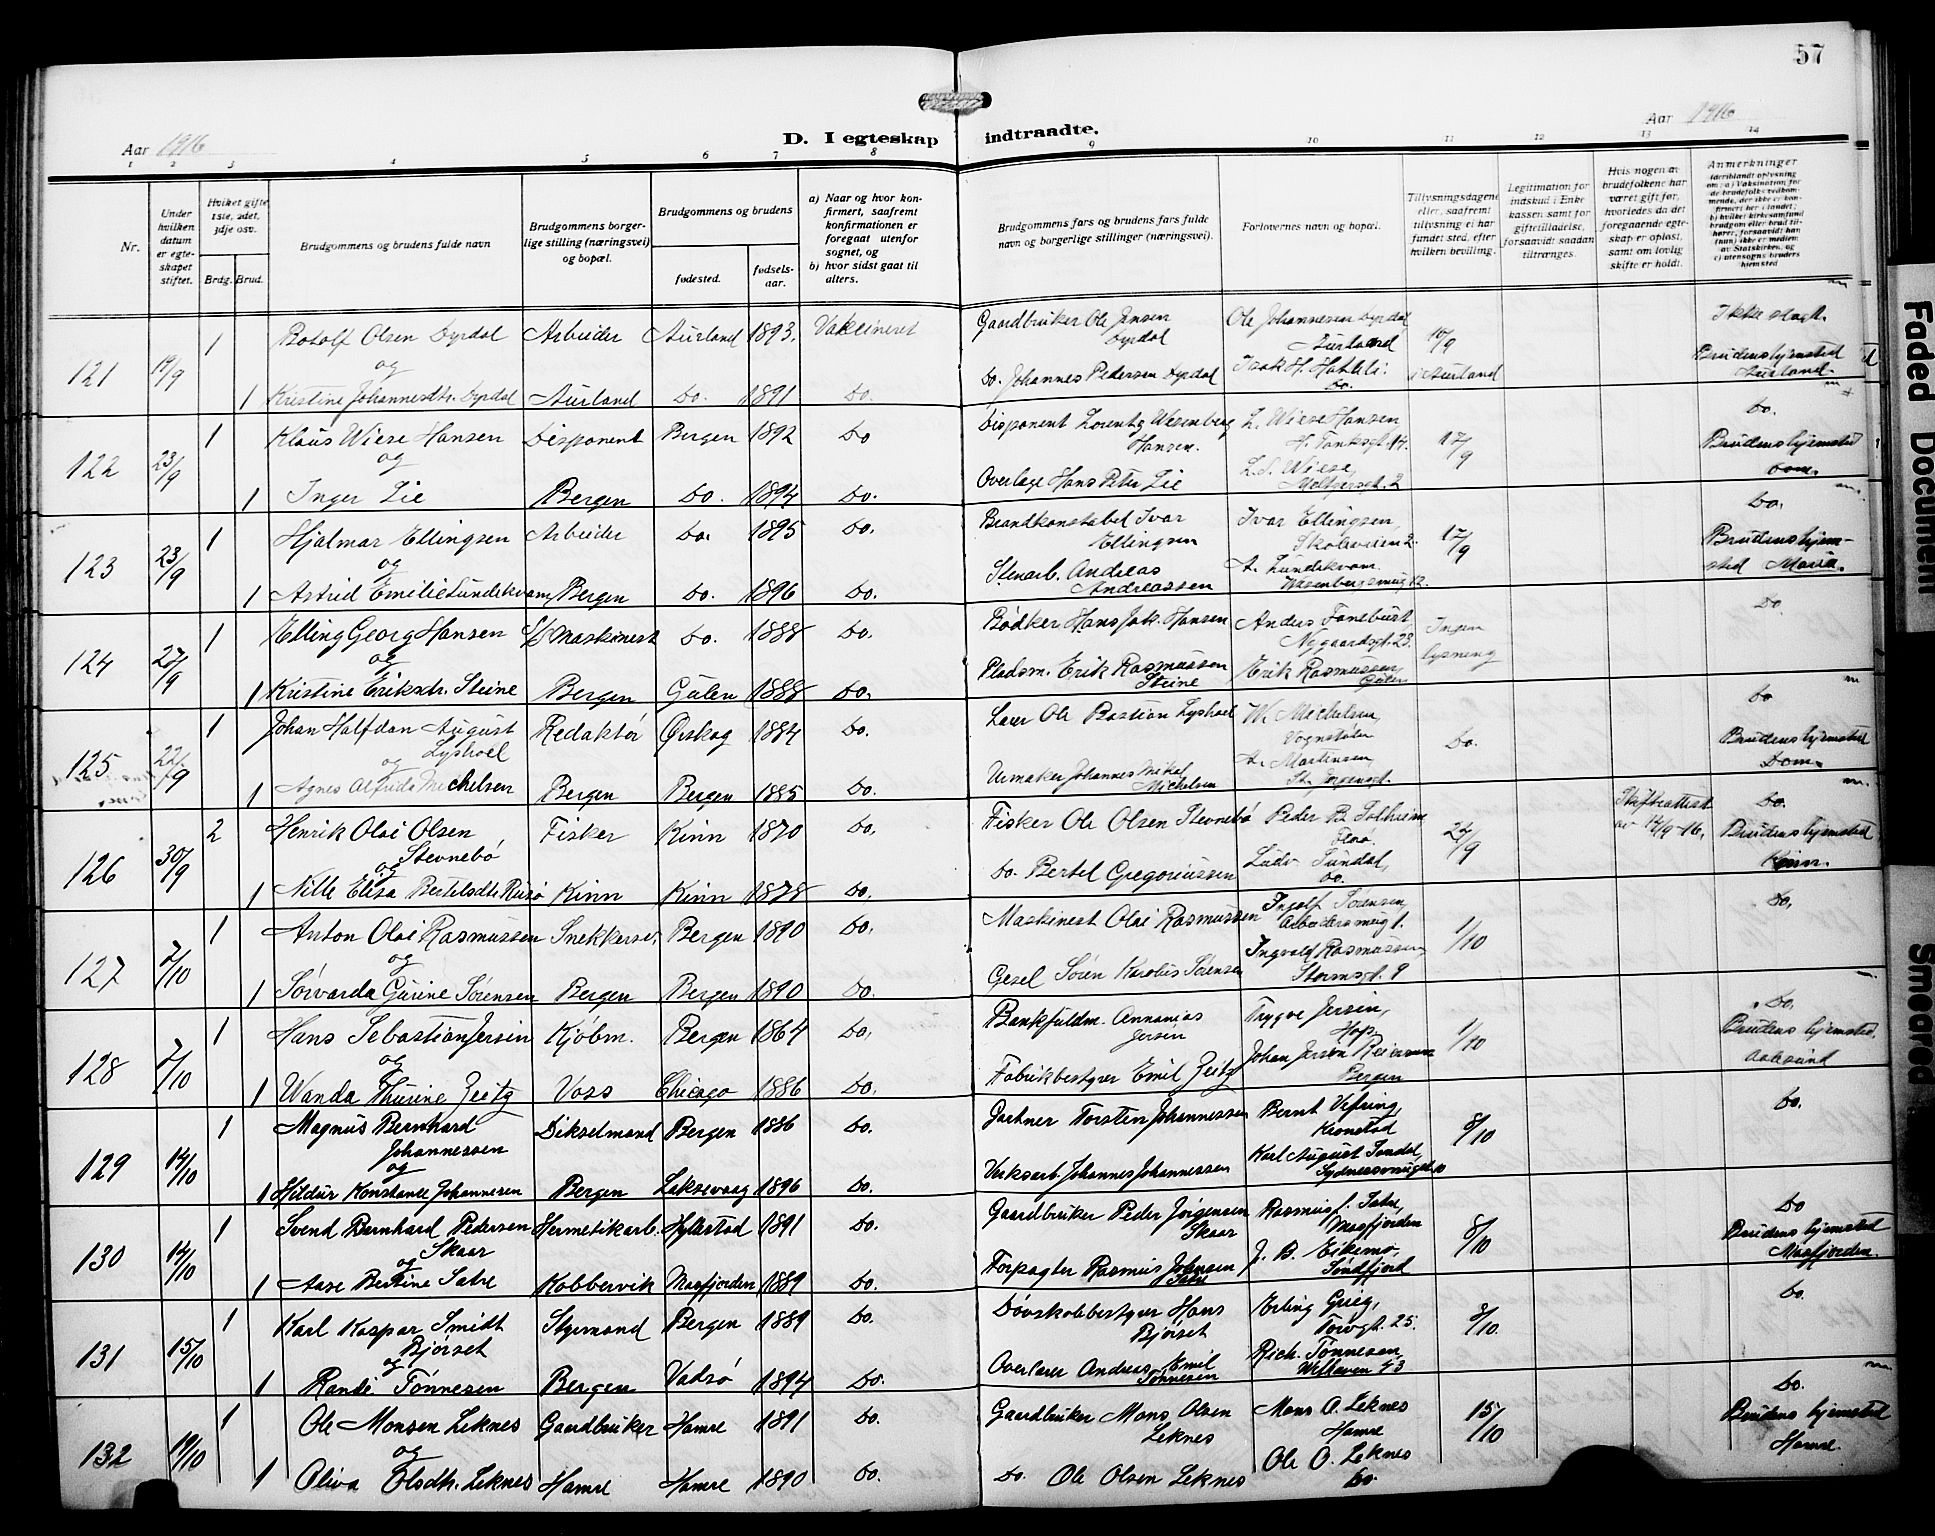 57
Aar 1916
D. I egteskap indtraadte.
Aar 1916
1 2 3 4 5 6 7 8 9 10 11 12 13 14
Nr.
Under hvilken datum er egteskapet stiftet.
Hvilket gifte 1ste, 2det, 3dje osv.
Brdg. Brud.
Brudgommens og brudens fulde navn
Brudgommens borgerlige stilling (næringsvei) og bopæl.
Brudgommens og brudens
fødested. fødselsaar.
a) Naar og hvor konfirmert, saafremt konfirmationen er foregaat utenfor sognet, og
b) hvor sidst gaat til alters.
Brudgommens fars og brudens fars fulde navn og borgerlige stillinger (næringsvei).
Forlovernes navn og bopæl.
Tillysningsdagene eller, saafremt tillysning ei har fundet sted, efter hvilken bevilling.
Legitimation for indskud i Enkekassen samt for giftetilladelse, forsaavidt saadan tiltrænges.
Hvis nogen av brudefolkene har været gift før, hvorledes da det foregaaende egteskap er opløst, samt om lovlig skifte er holdt.
Anmerkninger (deriblandt oplysning om: a) Vaksination for de brudefolks vedkommende, der ikke er konfirmert her i landet; b) hvilket kirkesamfund brudgom eller brud tilhører, forsaavidt han (hun) ikke er medlem av Statskirken, og c) utensogns bruders hjemsted
121 19/9 1 Botolf Olsen Dyrdal Arbeider Aurland 1893. Vakcineret Gaardbruker Ole Jensen Dyrdal Ole Johannesen Dyrdal Aurland 10/9 i Aurland Ikke slegt.
og
1 Kristine Johannesdtr. Dyrdal Aurland Do. 1891 Do. Do. Johannes Pedersen Dyrdal Isak H. Hathli Do. Brudens hjemsted Aurland.
122 23/9 1 Klaus Wiese Hansen Disponent Bergen 1892 Do Disponent Lorentz Wesenberg Hansen. L. Wiese Hansen H. Tanksgt. 14. 17/9 Do.
og
1 Inger Lie Bergen Do. 1894 Do. Overlæge Hans Peter Lie L. S. Wiese, Møltzersgt. 2 Brudens hjemsted Dom.
123 23/9 1 Hjalmar Ellingsen Arbeider Do. 1895 Do. Brandkonstabel Ivar Ellingsen Ivar Ellingsen, Skoleveien 2. 17/9 Do.
og
1 Astrid Emilie Lundekvam Bergen Do. 1896 Do. Stenarb. Andreas Andreassen A. Lundekvam. Wesenbergsmug 12. Brudens hjemsted Maria.
124 27/9 1 Elling Georg Hansen S/S Maskinist Do. 1888 Do. Bødker Hans Jak. Hansen Anders Fonebust, Nygaardsgt. 23. Ingen lysning Do.
og
1 Kristine Eriksdtr. Steine Bergen Gulen 1888 Do. Pladsm. Erik Rasmussen Steine Erik Rasmussen, Gulen
125 22/9 1 Johan Halfdan August Lyshoel Redaktør Ørskog 1884 Do. Lærer Ole Bastian Lyshoel W. Michelsen, Vognstølen Do. Do
og
1 Agnes Alfrida Michelsen Bergen Bergen 1885 Do. Urmaker Johannes Mikal Michelsen A. Martinsen, St. Jørgensgt. Brudens hjemsted Dom.
126 30/9 2 Henrik Olai Olsen Stevnebø Fisker Kinn 1870 Do. Fisker Ole Olsen Stevnebø Peder B. Solheim Florø. 24/9 Skifteattest av 14/9-16. Do.
og
1 Nille Elisa Bertelsdtr. Kinn Kinn 1878 Do. Do. Bertel Gregoriussen Ludv. Sundal, Do. Brudens hjemsted Kinn.
127 7/10 1 Anton Olai Rasmussen Snekkersv. Bergen 1890 Do. Maskinist Olai Rasmussen Ingolf Sørensen, Arbeidersmug 1. 1/10 Do.
og
1 Sørvarda Gurine Sørensen Bergen Bergen 1890 Do. Gesel Søren Karolius Sørensen Ingvald Rasmussen, Stormsgt. 9
128 7/10 1 Hans Sebastian Jersin Kjøbm. Bergen 1864 Do. Bankfuldm. Annanias Jersin Trygve Jersin, Hop. 1/10 Do.
og
1 Wanda Thurine Zeitz Voss Chicago 1886 Do. Fabrikbestyrer Emil Zeitz Johan Jersin Reiersen Bergen Brudens hjemsted Aalesund
129 14/10 1 Magnus Bernhard Johannessen Dikselmand Bergen 1886 Do. Gartner Torsten Johannessen Bernt Vefring, Kronstad 8/10 Do.
og
1 Hildur Konstanse Johannesen Bergen Laksevaag 1896 Do. Verksarb. Johannes Johannessen Karl August Sondal, Sydnessmuget 10
130 14/10 1 Svend Bernhard Pedersen Skaar Hermetikarb. Hyllestad 1891 Do. Gaardbruker Peder Jørgensen Skaar Rasmus J. Sætre, Masfjorden 8/10 Do
og
1 Aase Bertine Sætre Kobbervik Masfjorden 1889 Do. Forpagter Rasmus Johnsen Sætre J. B. Eikemo, Søndfjord Brudens hjemsted Masfjorden.
131 15/10 1 Karl Kaspar Smidt Bjørset Styrmand Bergen 1889 Do. Døvskolebestyrer Hans Bjørset Erling Grieg, Torvgt. 25. 8/10. Do.
og
1 Randi Tønnesen Bergen Vadsø 1894 Do. Overlærer Andreas Emil Tønnesen Rich. Tønnesen, Welhaven 43
132 19/10 1 Ole Monsen Leknes Gaardbruker Hamre 1891 Do. Gaardbruker Mons Olsen Leknes Mons O. Leknes Hamre 15/10 Do.
og
1 Oliva Olsdtr. Leknes Hamre Hamre 1890 Do. Do. Ole Olsen Leknes Ole O. Leknes Do. Brudens hjemsted Hamre.
Faded Document
Smeared